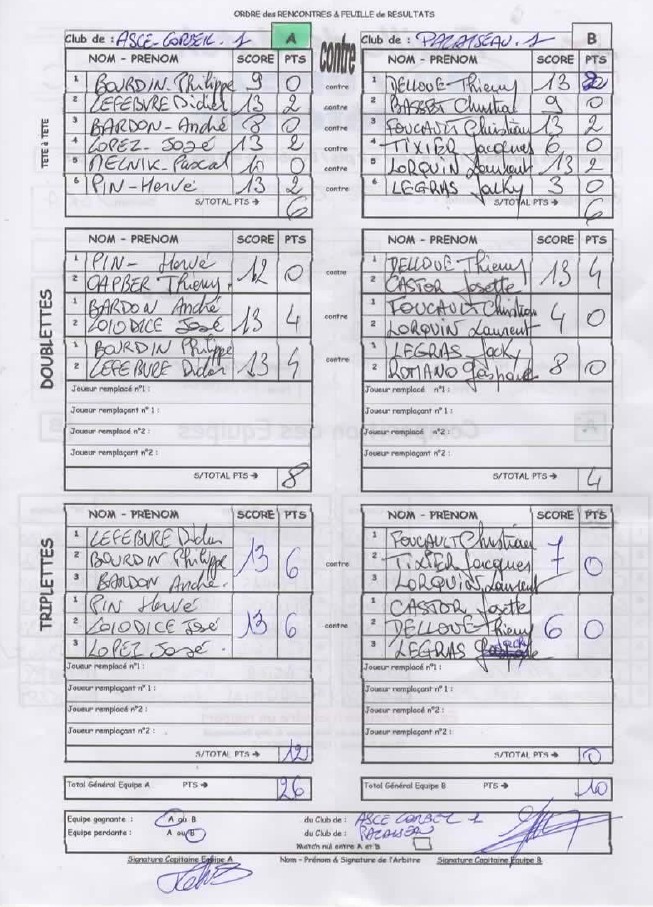 ORDRE des RENCONTRES & FEUILLE de RESULTATS
Club de : ASCE-CORBEIL. 1 A contre Club de : PALAISEAU. 1 B
NOM - PRENOM SCORE PTS NOM - PRENOM SCORE PTS
TETE à TETE
1 BOURDIN Philippe 9 0 contre 1 DELLOUE-Thierry 13 2
2 LEFEBURE Didier 13 2 contre 2 BASSET Chantal 9 0
3 BARDON-André 8 0 contre 3 FOUCAULT Christian 13 2
4 LOPEZ-José 13 2 contre 4 TIXIER Jacques 6 0
5 MELNIK-Pascal 10 0 contre 5 LORQUIN Laurent 13 2
6 PIN-Hervé 13 2 contre 6 LEGRAS Jacky 3 0
S/TOTAL PTS → 6 S/TOTAL PTS → 6
DOUBLETTES
NOM - PRENOM SCORE PTS NOM - PRENOM SCORE PTS
1 PIN- Hervé 12 0 contre 1 DELLOUE Thierry 13 4
2 Thierry 2 CASTOR Josette
1 BARDON André 13 4 contre 1 FOUCAULT Christian 4 0
2 LOIODICE José 2 LORQUIN Laurent
1 BOURDIN Philippe 13 4 contre 1 LEGRAS Jacky 8 0
2 LEFEBURE Didier 2 ROMANO Gaspare
Joueur remplacé n°1 : Joueur remplacé n°1 :
Joueur remplaçant n° 1 : Joueur remplaçant n° 1 :
Joueur remplacé n°2 : Joueur remplacé n°2 :
Joueur remplaçant n°2 : Joueur remplaçant n°2 :
S/TOTAL PTS → 8 S/TOTAL PTS → 4
TRIPLETTES
NOM - PRENOM SCORE PTS NOM - PRENOM SCORE PTS
1 LEFEBURE Didier 13 6 contre 1 FOUCAULT Christian 7 0
2 BOURDIN Philippe 2 TIXIER Jacques
3 BARDON André 3 LORQUIN Laurent
1 PIN Hervé 13 6 contre 1 CASTOR Josette 6 0
2 LOIODICE José 2 DELLOUE Thierry
3 LOPEZ José 3 LEGRAS Jacky
Joueur remplacé n°1 : Joueur remplacé n°1 :
Joueur remplaçant n° 1 : Joueur remplaçant n° 1 :
Joueur remplacé n°2 : Joueur remplacé n°2 :
Joueur remplaçant n°2 : Joueur remplaçant n°2 :
S/TOTAL PTS → 12 S/TOTAL PTS → 0
Total Général Equipe A PTS → 26 Total Général Equipe B PTS → 10
Equipe gagnante : A ou B du Club de : ASCE CORBEIL 1
Equipe perdante : A ou B du Club de : PALAISEAU
Match nul entre A et B
Signature Capitaine Equipe A Nom - Prénom & Signature de l'Arbitre Signature Capitaine Equipe B